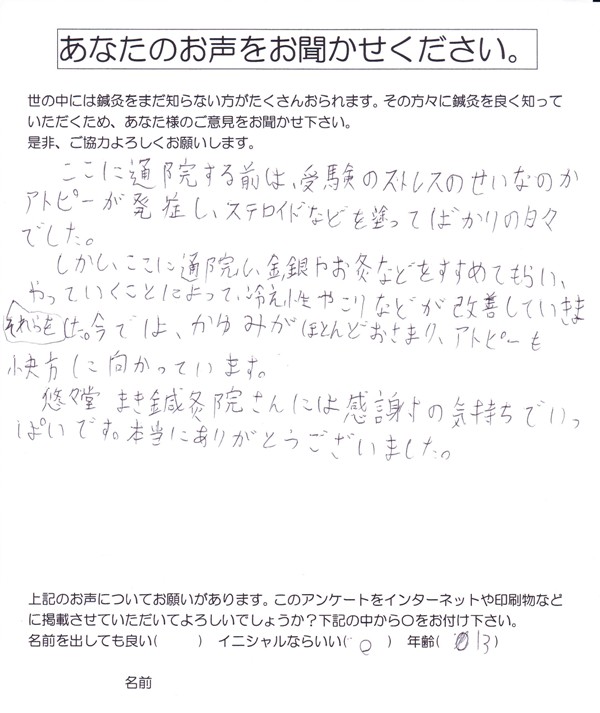 あなたのお声をお聞かせください。
世の中には鍼灸をまだ知らない方がたくさんおられます。その方々に鍼灸を良く知って
いただくため、あなた様のご意見をお聞かせ下さい。
是非、ご協力よろしくお願いします。
ここに通院する前は、受験のストレスのせいなのか
アトピーが発症し、ステロイドなどを塗ってばかりの日々
でした。
しかし、ここに通院し、金銀やお灸などをすすめてもらい、
それらを
やっていくことによって、冷え性やこりなどが改善していきま
した。今では、かゆみがほとんどおさまり、アトピーも
快方に向かっています。
悠々堂 まき鍼灸院さんには感謝の気持ちでいっ
ぱいです。本当にありがとうございました。
上記のお声についてお願いがあります。このアンケートをインターネットや印刷物など
に掲載させていただいてよろしいでしょうか?下記の中から○をお付け下さい。
名前を出しても良い( ) イニシャルならいい( ○ ) 年齢( 13 )
名前